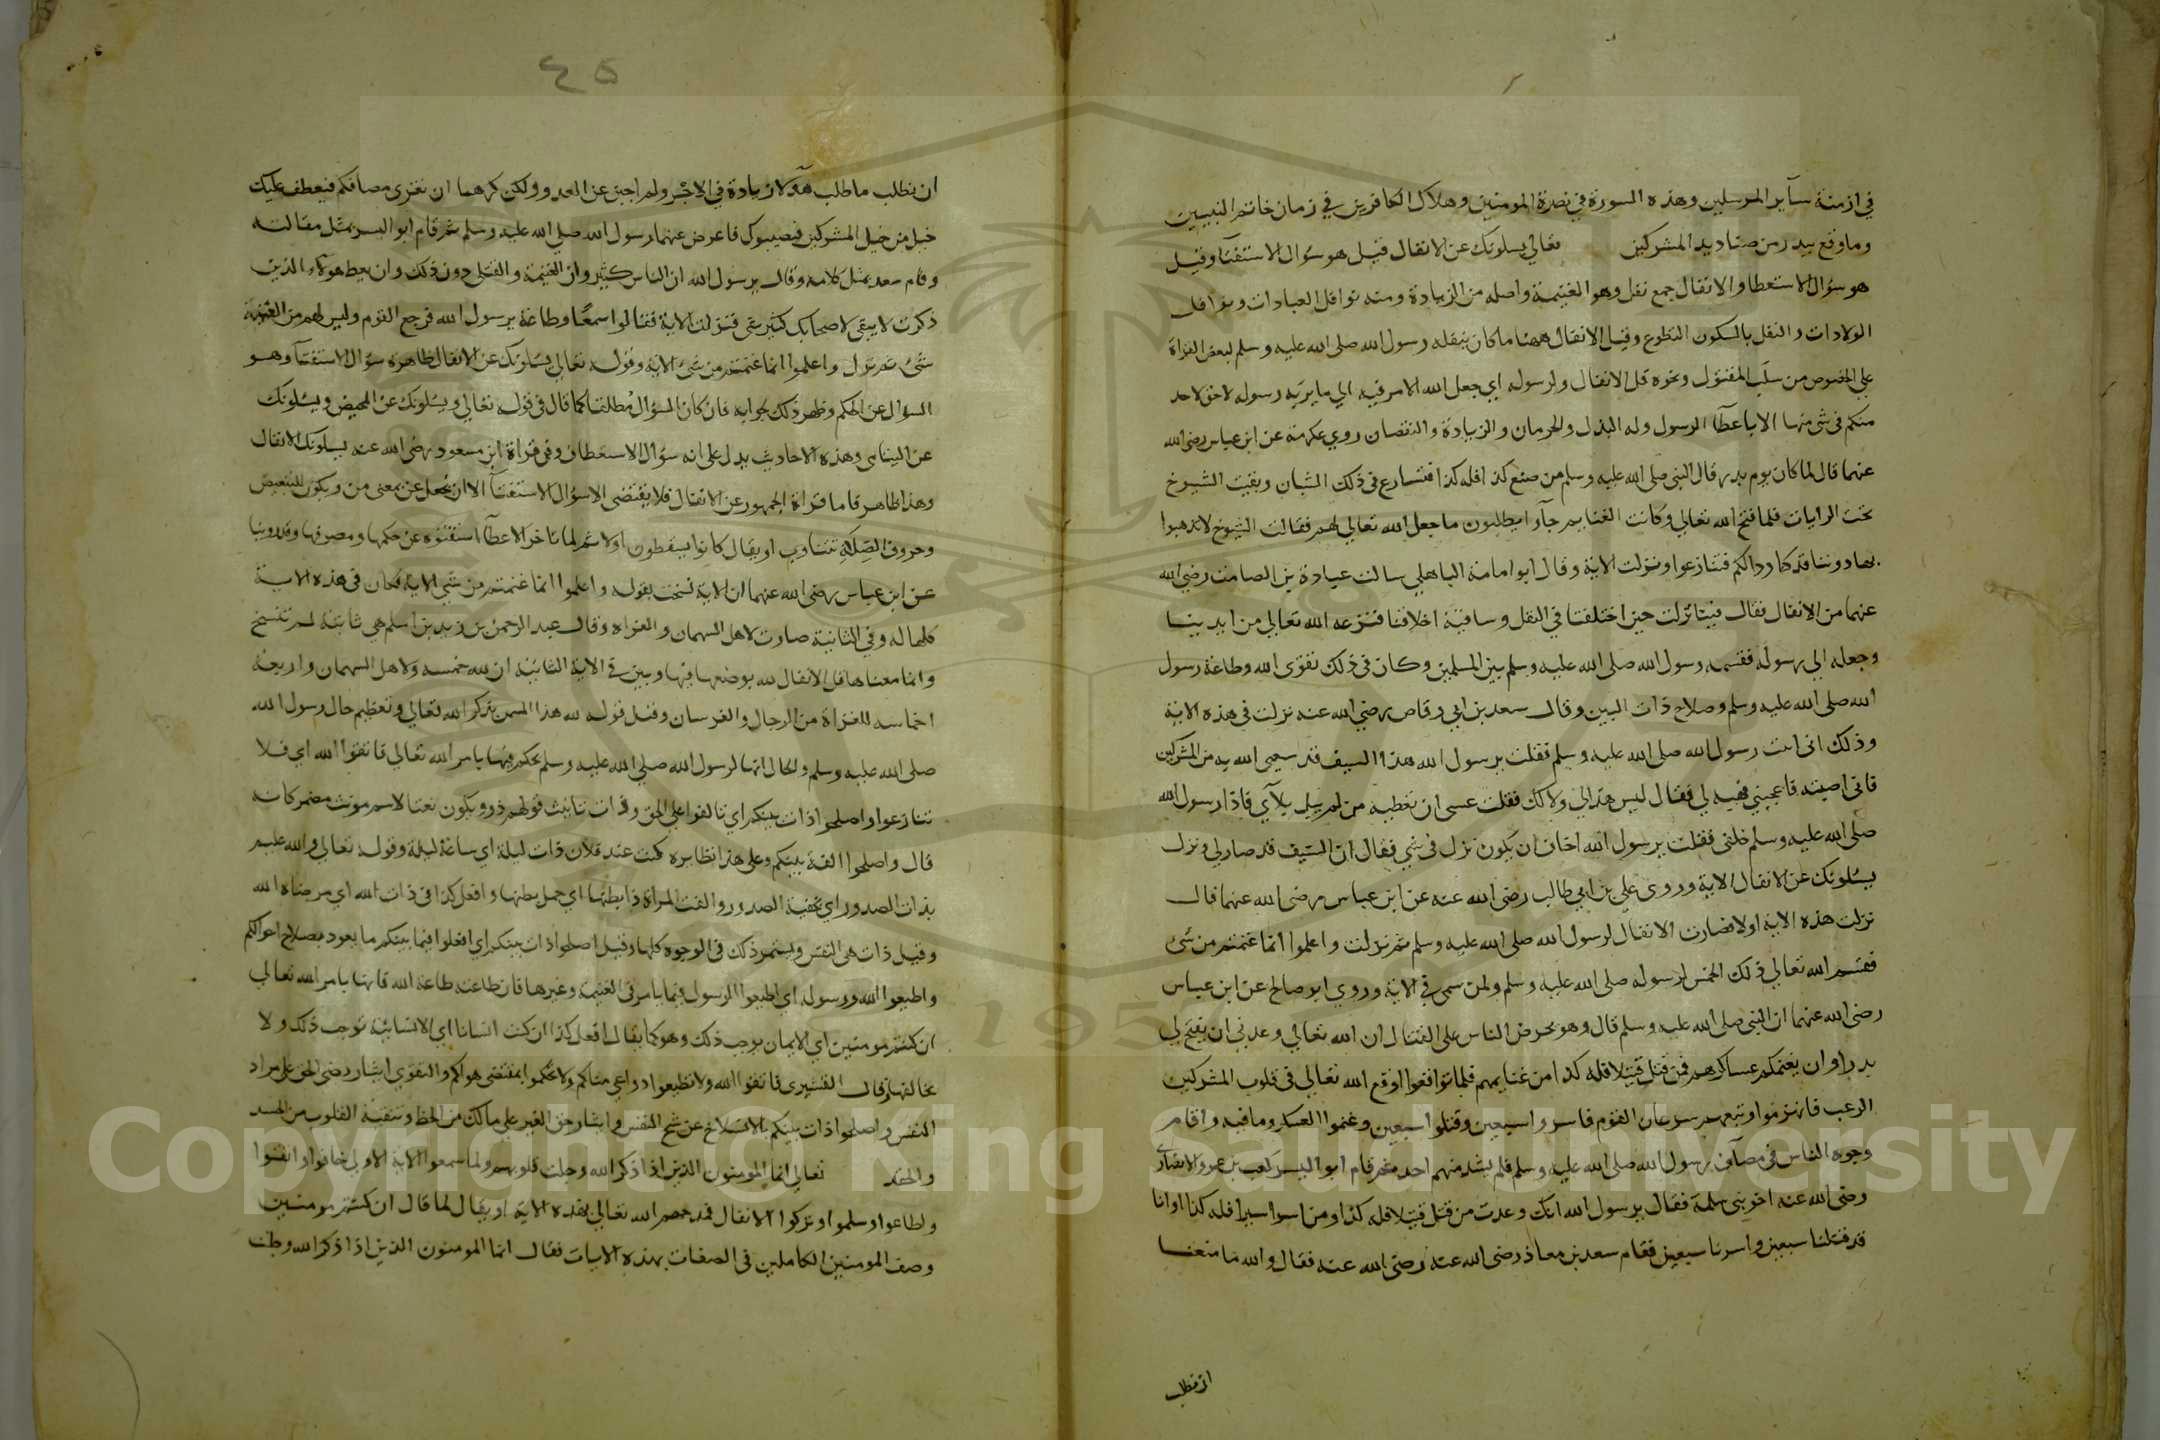 في ازمنة سآير المرسلين وهذه السورة في نصرة المومنين وهلاك الكافرين في زمان خاتم النبيين
وما وقع ببدر من صناديد المشركين تعالي يسلونك عن الانفال قيل هو سؤال الاستفتآ وقيل
هو سؤال الاستعطا والانفال جمع نفل وهو الغنيمة واصله من الزيادة ومنه نوافل العبادات ونوافل
الولادات والنفل بالسكون التطوع وقيل الانفال ههنا ما كان ينفله رسول الله صلى الله عليه وسلم لبعض الغزاة
على الخصوص من سلب المقتول ونحوه قل الانفال لله ولرسوله اي جعل الله الامر فيه الي ما يريه رسوله لا حق لاحد
منكم في شى منها الا باعطآ الرسول وله البذل والحرمان والزيادة والنقصان روي عكرمة عن ابن عباس رضى الله
عنهما قال لما كان يوم بدر قال النبى صلى الله عليه وسلم من صنع كذا فله كذا فتسارع في ذلك الشبان وبقيت الشيوخ
تحت الرايات فلما فتح الله تعالي وكانت الغنايم جآوا يطلبون ما جعل الله تعالي لهم فقالت الشيوخ لا تذهبوا
بها دوننا فقد كنا ردا لكم فتنازعوا ونزلت الاية وقال ابو امامة الباهلي سالت عبادة بن الصامت رضى الله
عنهما من الانفال فقال فينا نزلت حين اختلفنا في النفل وسافية اخلاقنا فنزعه الله تعالي من ايدينا
وجعله الى رسوله فقسمه رسول الله صلى الله عليه وسلم بين المسلمين وكان في ذلك تقوى الله وطاعة رسول
الله صلى الله عليه وسلم وصلاح ذات البين وقال سعد بن ابي وقاص رضى الله عنه نزلت في هذه الاية
وذلك انى اتيت رسول الله صلى الله عليه وسلم فقلت يرسول الله هذا السيف قد سيحى الله به من المشركين
فانى اصبته فاعجبني فهبه لي فقال ليس هذا لي ولا لك فقلت عسى ان تعطيه من لم يبل بلآي فاذا رسول الله
صلى الله عليه وسلم خلفي فقلت يرسول الله اخاف ان يكون نزل في شي فقال ان السيف قد صار لي ونزل
يسئلونك عن الانفال الاية وروى علي بن ابي طالب رضى الله عنه عن ابن عباس رضى الله عنهما قال
نزلت هذه الاية اولا فصارت الانفال لرسول الله صلى الله عليه وسلم ثم نزلت واعلموا انما غنمتم من شئ
فقسم الله تعالي ذلك الخمس لرسوله صلى الله عليه وسلم ولمن سمى في الاية وروي ابو صالح عن ابن عباس
رضى الله عنهما ان النبى صلى الله عليه وسلم قال وهو يحرض الناس على القتال ان الله تعالي وعدني ان يفتح لي
بدرا وان يغنمكم عساكرهم فمن قتل قتيلا فله كذا من غنايمهم فلما تواقعوا اوقع الله تعالي في قلوب المشركين
الرعب فانهزموا وتبعهم سرعان القوم فاسروا سبعين وقتلوا سبعين وغنموا العسكر وما فيه واقام
وجوه الناس في مصآف رسول الله صلى الله عليه وسلم فلم يشذ منهم احد منهم ثم قام ابو اليسر كعب بن عمرو الانصارى
رضى الله عنه اخو بنى سلمة فقال يرسول الله انك وعدت من قتل قتيلا فله كذا ومن اسر اسيرا فله كذا وانا
قد قتلنا سبعين واسرنا سبعين فقام سعد بن معاذ رضى الله عنه رضى الله عنه فقال والله ما منعنا
ان نطلب
٤٥
ان نطلب ما طلب هؤلا زيادة في الاجر ولم اجبن عن العدو ولكن كرهنا ان نعرى مصافكم فيعطف عليك
خيل من خيل المشركين فيصيبوك فاعرض عنهما رسول الله صلى الله عليه وسلم ثم قام ابو اليسر بمثل مقالته
وقام سعد بمثل كلامه وقال يرسول الله ان الناس كثير وان الغنيمة والقتلى دون ذلك وان يعط هؤلاء الذين
ذكرت لا يبقى لاصحابك كثير شى فنزلت الاية فقالوا سمعا وطاعة يرسول الله فرجع القوم وليس لهم من الغنيمة
شئ ثم نزل واعلموا انما غنمتم من شئ الاية وقوله تعالي يسئلونك عن الانفال ظاهره سؤال الاستفتآ وهو
السؤال عن الحكم وظهر ذلك بجوابه فان كان السؤال مطلقا كما قال في قوله تعالي ويسئلونك عن المحيض ويسئلونك
عن اليتامى وهذه الاحاديث يدل على انه سؤال الاستعطاف وفي قراة ابن مسعود رضى الله عنه يسلونك الانفال
وهذا ظاهر فاما قراة الجمهور عن الانفال فلا يقتضى الا سؤال الاستفتآ الا ان يجعل عن بمعنى من ويكون للتبعيض
وحروف الصلة تتناوب او يقال كانوا يستعطون اولا ثم لما تاخر الاعطآ استفتوه عن حكمها ومصرفها وقد روينا
عن ابن عباس رضى الله عنهما ان الاية نسخت بقوله واعلموا انما غنمتم من شي الاية فكان في هذه الاية
كلها له وفي الثانية صارت لاهل السهمان والغزاة وقال عبد الرحمن بن زيد بن اسلم هي ثابتة لم تنسخ
وانما معناها قل الانفال لله يوضعها فيها وبين في الاية الثانية ان لله خمسه ولاهل السهمان واربعة
اخماسه للغزاة من الرجال والفرسان وقيل قوله لله هذا التيمن بذكر الله تعالي وتعظيم حال رسول الله
صلى الله عليه وسلم والحال انها لرسول الله صلي الله عليه وسلم يحكم فيها بامر الله تعالي فاتقوا الله اي فلا
تتنازعوا واصلحوا ذات بينكم اي تالفوا على الحق وذات تانيث قولهم ذو ويكون نعتا لاسم مونث مضمر كانه
قال واصلحوا الفة بينكم وعلى هذا نظايره كنت عند فلان ذات ليلة اي ساعة ليلة وقوله تعالي والله عليم
بذات الصدور اي بخفية الصدور والقت المراة ذا بطنها اي حمل بطنها وافعل كذا في ذات الله اي مرضاة الله
وقيل ذات هى النفس ويستمر ذلك في الوجوه كلها وقيل اصلحوا ذات بينكم اي افعلوا فيما بينكم ما يعود بصلاح احوالكم
واطيعوا الله ورسوله اي اطيعوا الرسول فيما يامر في الغنيمة وغيرها فان طاعته طاعة الله فانها بامر الله تعالي
ان كنتم مومنين اي الايمان يوجب ذلك وهو كما يقال افعل كذا ان كنت انسانا اي الانسانية توجب ذلك ولا
تخالفها وقال القشيرى فاتقوا الله ولا تطيعوا دواعي مناكم ولا تحكموا بمقتضى هواكم والتقوي ايثار رضى الحق على مراد
النفس واصلحوا ذات بينكم بالانسلاخ عن شح النفس وايثار حق الغير على مالك من الحظ وتنقية القلوب من الحسد
والحقد تعالي انما المومنون الذين اذا ذكر الله وجلت قلوبهم ولما سمعوا الاية الاولي خافوا واتقوا
واطاعوا وسلموا وتركوا الانفال فمدحهم الله تعالي بهذه الاية او يقال لما قال ان كنتم مومنين
وصف المومنين الكاملين في الصفات بهذه الايات فقال انما المومنون الذين اذا ذكر الله وجلت
Copyright © King Saud University
1957